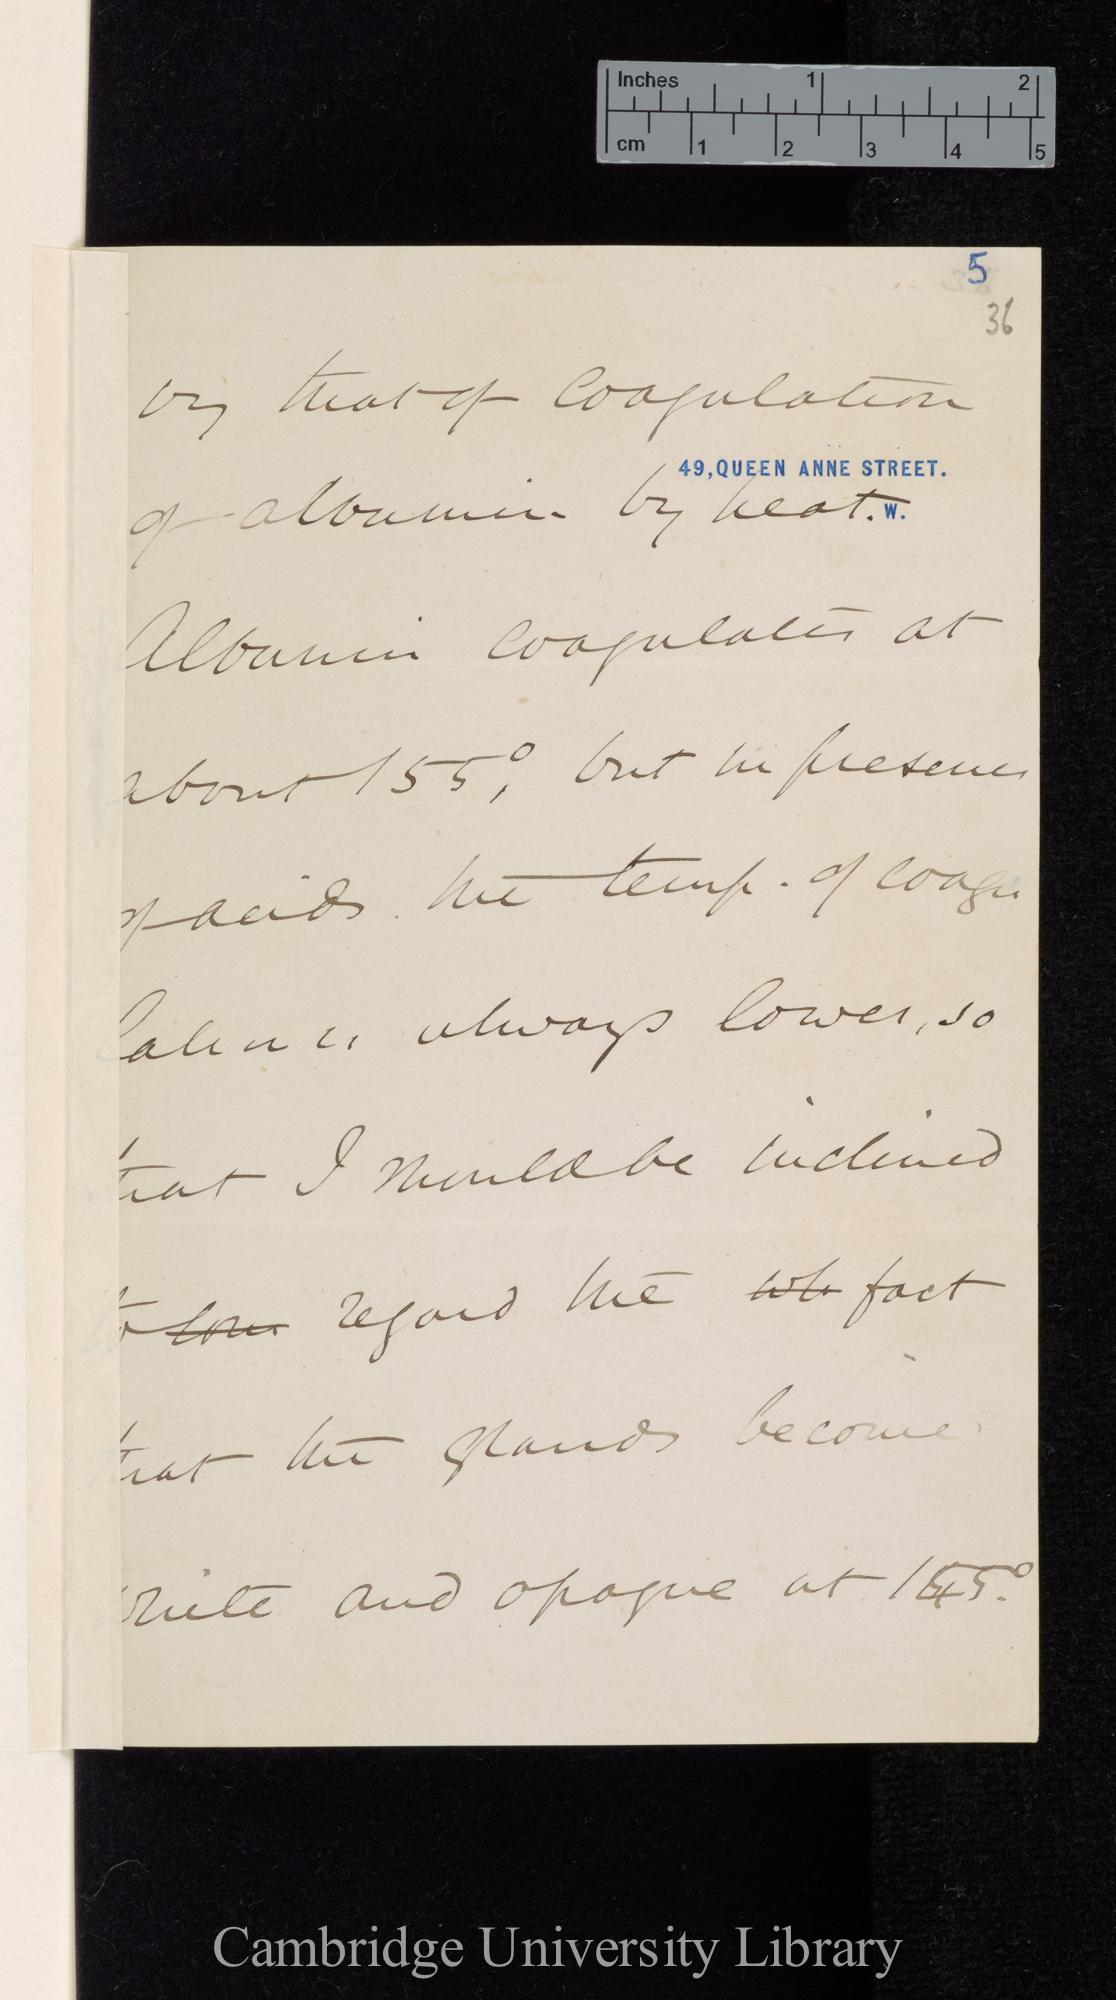 Inches 1 2
cm 1 2 3 4 5
5
36
by that of coagulation
49, QUEEN ANNE STREET.
of albumin by heat.
W.
Albumin coagulates at
about 155°, but in presence
of acids the temp. of coagu
lation is always lower, so
that I should be inclined
to regard the wh fact
that the glands become
white and opaque at 145°.
Cambridge University Library